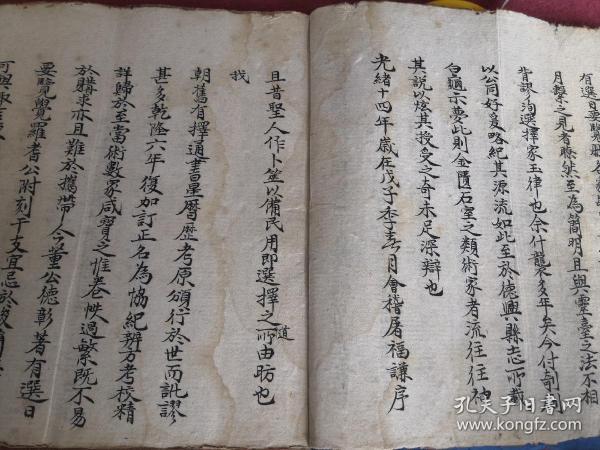 有選日要覽
月繫之見者瞭然至為簡明且與靈臺之法不相
背謬洵選擇家玉律也余什襲多年矣今付剞劂
以公同好爰略紀其源流如此至於德興縣志所載
白鶴示夢此則金匱石室之類術家者流往往神
其說以炫其授受之奇未足深辯也
光緒十四年歲在戊子季春月會稽屠福謙序
且昔聖人作卜筮以備民用即選擇之所由昉也
道
我
朝舊有擇通書星曆歷考原頒行於世而訛謬
甚多乾隆六年復加訂正名為協紀辨方考校精
詳歸於至當術數家咸寶之惟卷帙過繁既不易
於購求亦且難於攜帶今董公德彰著有選日
要覽覺羅者公附刻干支宜忌於
孔夫子旧书网
www.kongfz.com